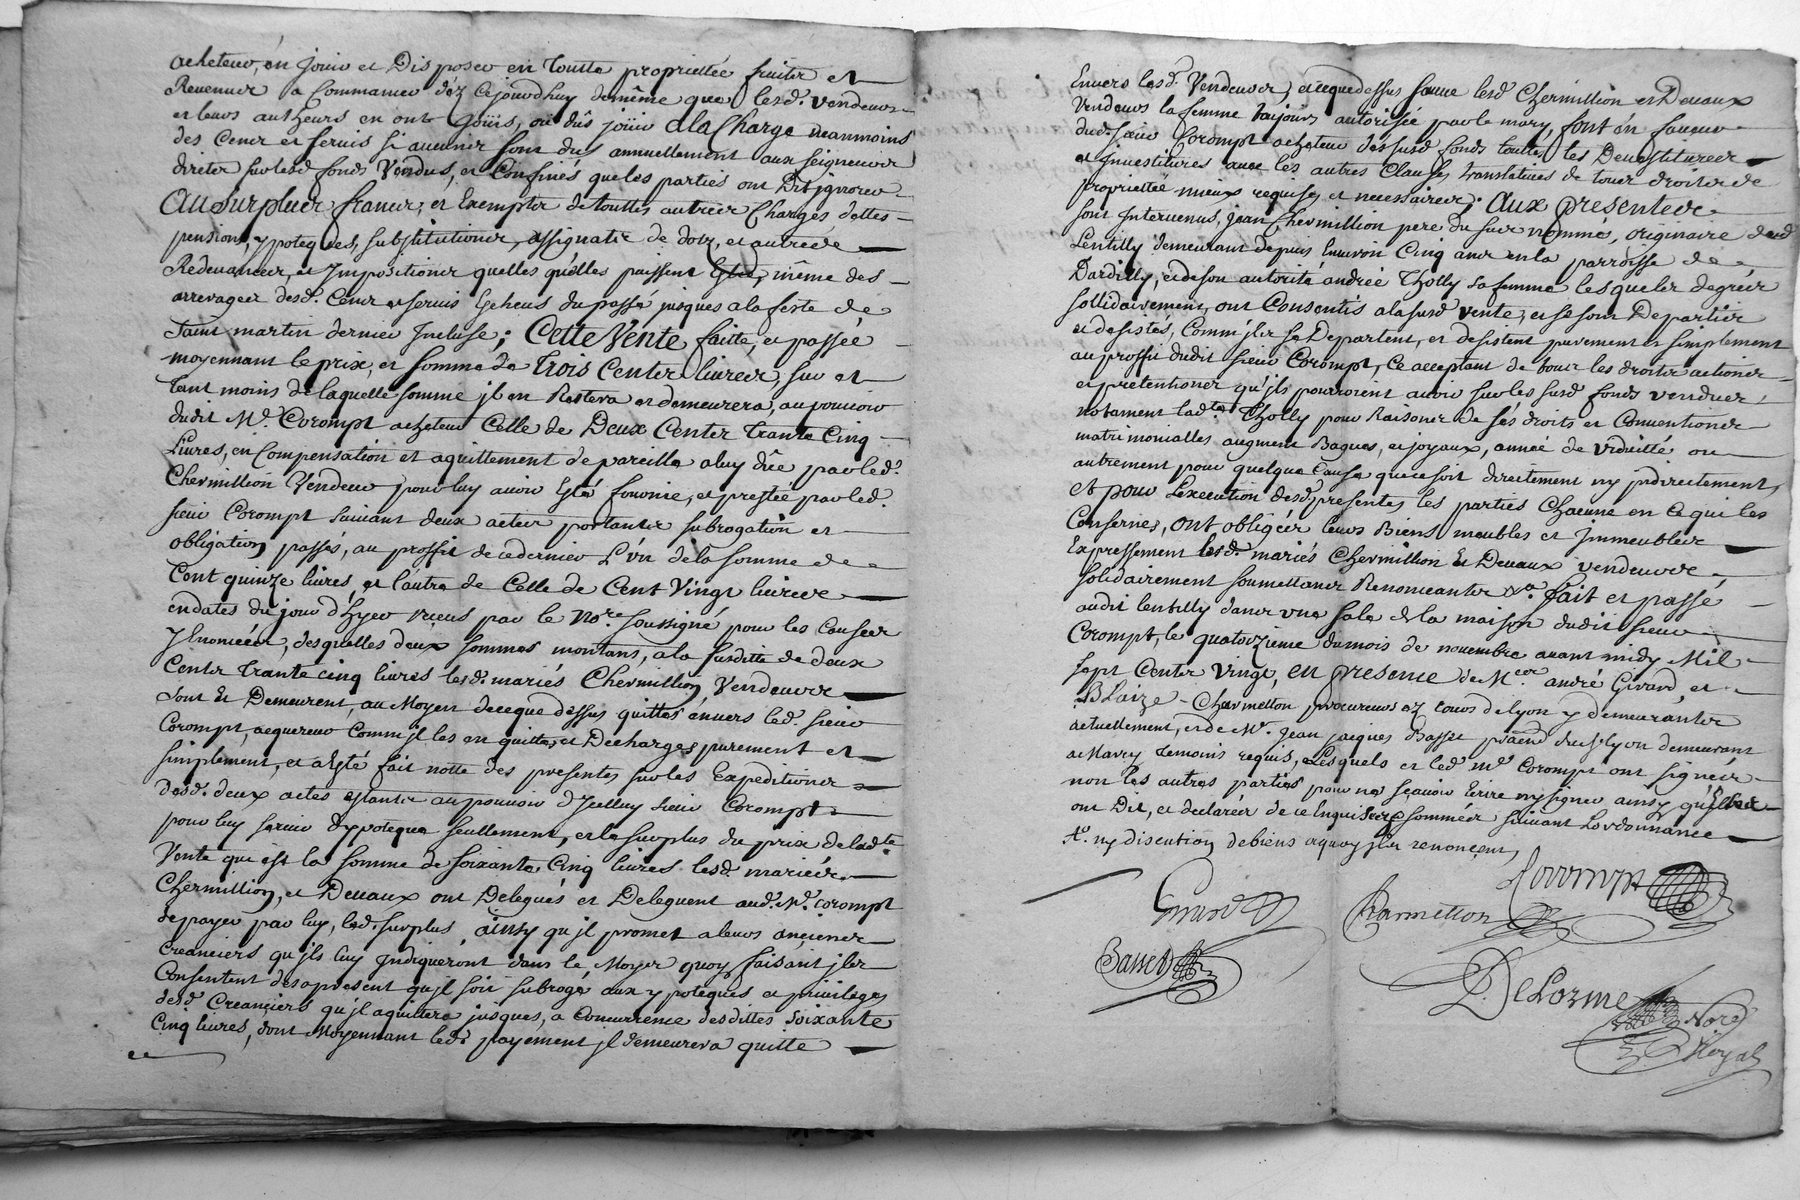 acheteur, en jouir et Disposer en toutte proprietée fruits et
Revenus a Commancer déz cejourdhuy demême que lesd. vendeurs
et leurs autheurs en ont joüis, ou dûs joüir alaCharge neanmoins
des Cens et servis si aucuns sont dus annuellement aux seigneurs
directs surlesd fonds Vendus, et Confinés que les parties ont Dit ignorer
AuSurplus francs, et Exempts detouttes autres Charges dettes
pensions, ypoteques, substitutions, assignats de dotz, et autres
Redevances, et Impositions quelles qu'elles puissent Estre, même des
arrerages desd. Cens et servis Echeus du passé jusques ala feste de
Saint martin dernier Incluse; Cette Vente faitte, et passée
moyennant le prix, et somme de Trois Cents livres, sur et
tant moins de laquelle somme jl en Restera et demeurera, au pouvoir
dudit Mr. Corompt acheteur Celle de Deux Cents trante Cinq
Livres, en Compensation et aquittement de pareille aluy dûe par led.
Chermillion Vendeur pour luy avoir Esté fournie, et prestée par led.
sieur Corompt suivant deux actes portants subrogation et
obligation passés, au proffit de cedernier L'un dela somme de
Cent quinze livres, et l'autre de Celle de Cent Vingt livres
endates du jour d'hyer reçus par le No.re soussigné pour les Causes
y Enoncées, desquelles deux sommes montans, ala susditte de deux
Cents trante cinq livres lesd. mariés Chermillion, Vendeurs
Sont Et Demeurent, au Moyen deceque dessus quittes envers led. sieur
Corompt, acquereur Comm'jl les en quitte, et Decharge, purement et
simplement, et a Esté fait notte des presentes, sur les Expeditions
desd. deux actes estants au pouvoir d'Jcelluy sieur Corompt
pour luy servir d'ypoteque seullement, et le surplus du prix deladte
Vente qui est la somme de soixante Cinq livres lesd. mariés
Chermillion, et Devaux ont Delegués et Deleguent aud. Mr. Corompt
depayer par luy, led. surplus, ainsy qu'jl promet aleurs anciens
Creanciers qu'jls luy Indiqueront dans le, Moyen quoy faisant jls
Consentent des apresent qu'jl soit subrogé aux ypoteques et privileges
desd. Creanciers qu'jl aquittera jusques, a Concurrence desdittes soixante
Cinq livres, dont Moyennant led. payement jl demeurera quitte
Envers lesd. Vendeurs, acequedessus [...] lesd Chermillion et Devaux
Vendeurs la femme toujours autorisée par le mary, font en faveur
dud. sieur Corompt acheteur des susd fonds touttes les Devestitures
et Investitures avec les autres Clauses translatives de tous droits de
proprietée mieux requises et necessaires; Aux presentes
sont Intervenus, jean Chermillion pere du sus nommé, originaire dud
Lentilly demeurant depuis Environ Cinq ans en la parroisse de
Dardilly, et deson autorité andrée Tholly sa femme lesquels degrés
sollidairement, ont Consentis alasusd vente, et se sont Departis
et desistés, Comm'jls se Departent, et desistent purement et simplement
au proffit dudit sieur Corompt, Ce acceptant de tous les droits actions
et pretentions qu'jls pourroient avoir sur les susd fonds vendus,
notament ladte. Tholly pour Raisons de ses droits et Conventions
matrimonialles augment Bagues, et joyaux, année de viduitté ou
autrement pour quelque Cause que ce soit directement ny jndirectement,
Et pour L'execution desd. presentes les parties Chacune en Ce qui les
Conserne, ont obligées leurs Biens, meubles et jmmeubles
Expressement lesd. mariés Chermillion Et Devaux vendeurs
solidairement soumettans Renonceants xa. fait et passé
audit lentilly dans une sale de la maison dudit sieur
Corompt, le quatorzieme du mois de novembre avant midy Mil
sept Cents vingt, en presence de Mes andré Girard, et
Blaize Charmetton procureurs ez cours de lyon y demeurants
actuellement, et de Mr. Jean jacques Basset [...] lyon demeurant
a Marcy temoins requis, Lesquels et led. Mr. Corompt ont signées
non les autres parties pour ne sçavoir Ecrire ny signer ainsy qu'Elles
ont Dit, et declarées de ce Enquises et sommées suivant Lordonnance
At. ny discution debiens aquoy jls renonçent
Corompt
Girard
Charmetton
Basset
DeLorme
No.re
Royal